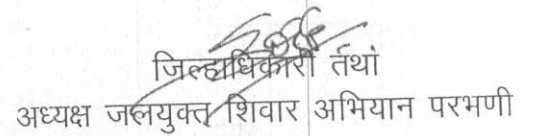 जिल्हाधिकारी तथा
अध्यक्ष जलयुक्त शिवार अभियान परभणी